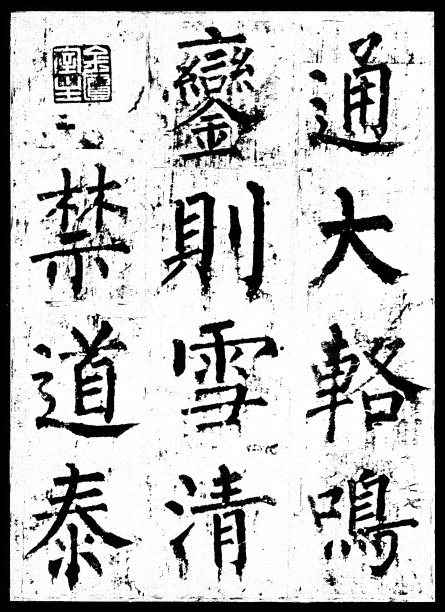 通大輅鳴
鑾則雪清
禁道泰